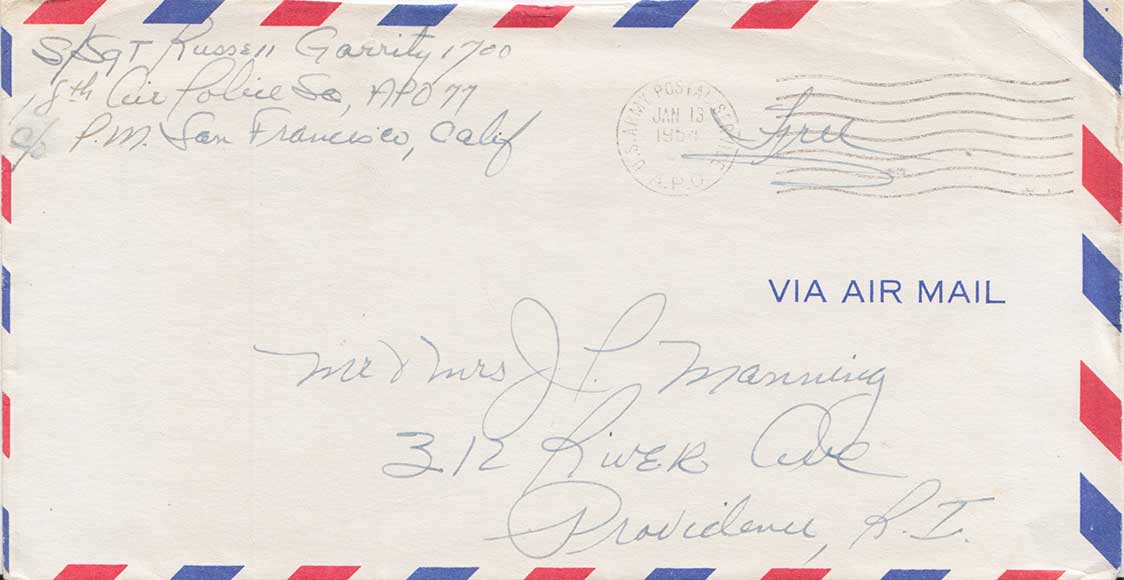 S/Sgt Russell Garrity 1700
18th Air Police Sq, APO 77
c/o P.M. San Francisco, Calif
U.S. ARMY POSTAL SERVICE
JAN 13
A.P.O.
Free
VIA AIR MAIL
Mr & Mrs J. Manning
312 River Ave
Providence, R.I.